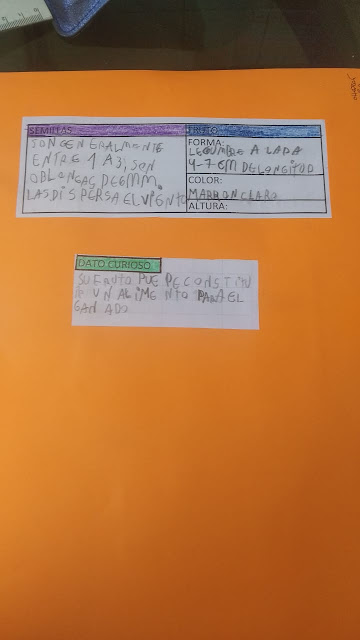 SEMILLAS
SON GENERALMENTE
ENTRE 1 A 3, SON
OBLONGAS DE 6 MM.
LAS DISPERSA EL VIENTO
FRUTO
FORMA:
LEGUMBRE A LADA
4-7 CM DE LONGITUD
COLOR:
MARRON CLARO
ALTURA:
DATO CURIOSO
SU FRUTO PUEDE CONSTITU
IR UN ALIMENTO PARA EL
GANADO